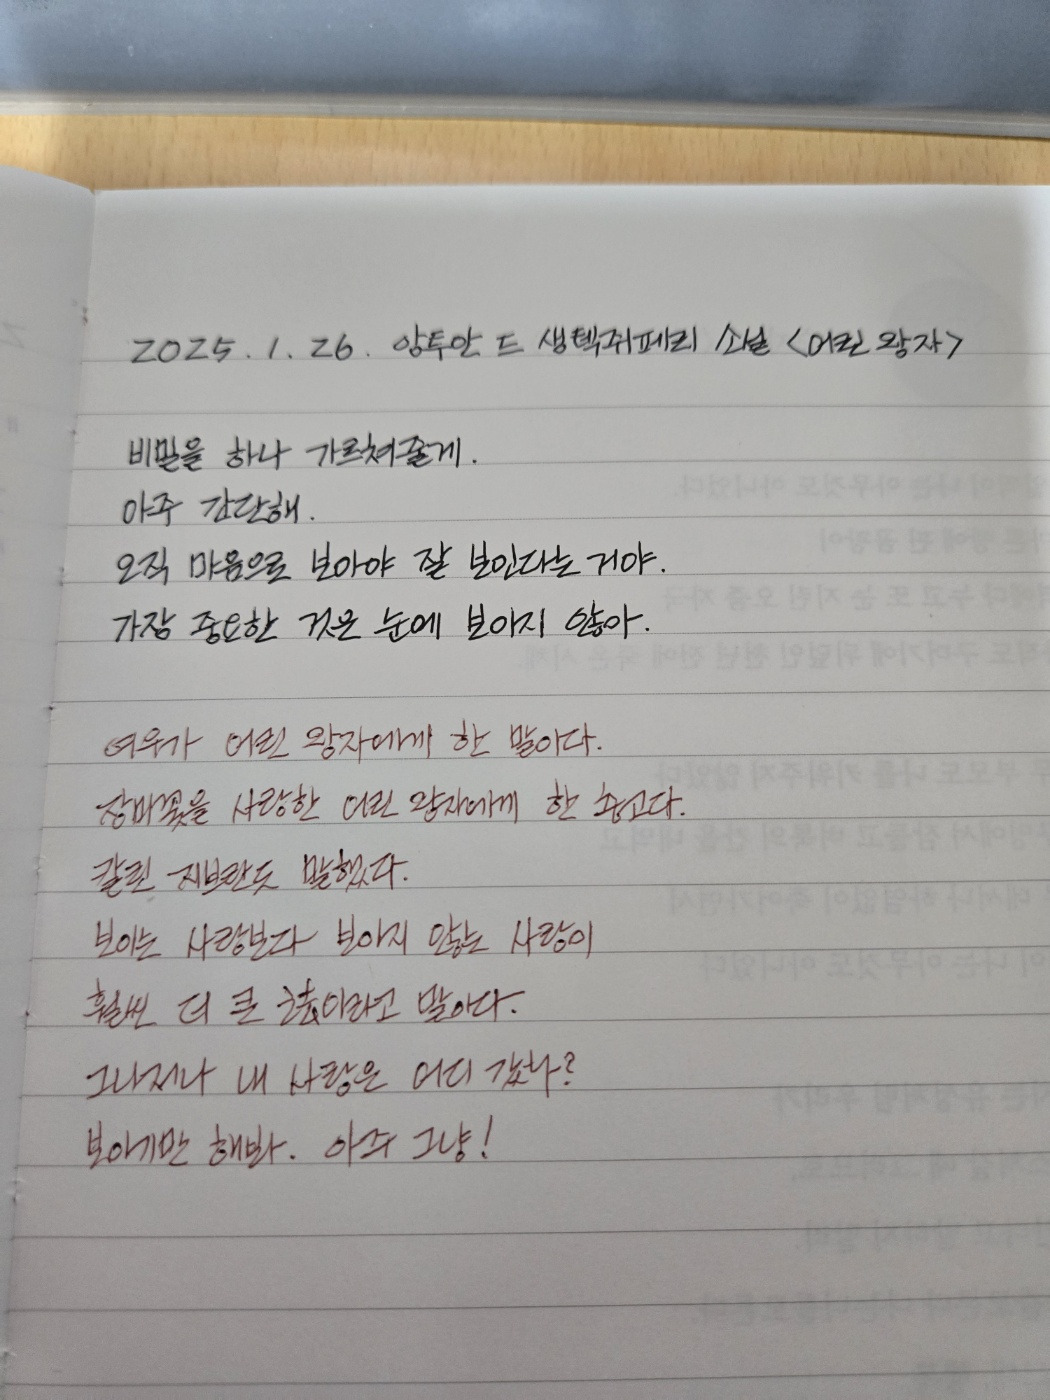 2025.1.26. 앙투안 드 생텍쥐페리 소설 <어린 왕자>
비밀을 하나 가르쳐줄게.
아주 간단해.
오직 마음으로 보아야 잘 보인다는 거야.
가장 중요한 것은 눈에 보이지 않아.
여우가 어린 왕자에게 한 말이다.
장미꽃을 사랑한 어린 왕자에게 한 충고다.
칼릴 지브란도 말했다.
보이는 사랑보다 보이지 않는 사랑이
훨씬 더 큰 것이라고 말이다.
그나저나 내 사랑은 어디 갔나?
보이기만 해봐. 아주 그냥!